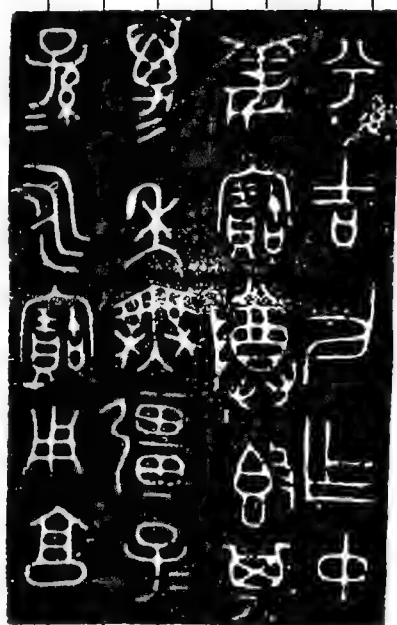 兮吉父乍中
姜寶尊簋其
萬年無疆子=
孫=永寶用享